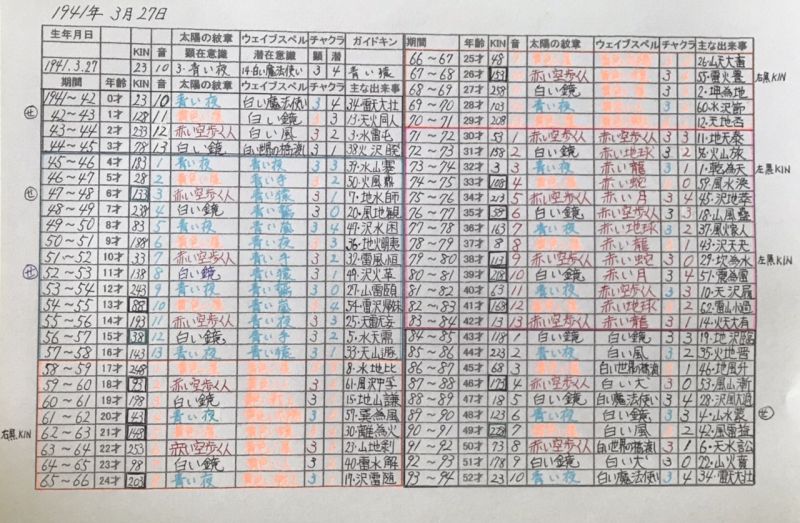 1941年 3月27日
生年月日 KIN 音 太陽の紋章 顕在意識 ウェイブスペル 潜在意識 チャクラ 顕 潜 ガイドキン
1941.3.27 23 10 3・青い夜 14・白い魔法使い 3 4 青い猿
期間 年齢 KIN 音 太陽の紋章 ウェイブスペル チャクラ 主な出来事
1941～42 0才 23 10 青い夜 白い魔法使い 3 4 34・雷天大壮
42～43 1才 128 11 白い鏡 3 2 13・天火同人
43～44 2才 233 12 赤い空歩く人 白い風 3 2 3・水雷屯
44～45 3才 78 13 白い鏡 白い世界の橋渡し 3 3 38・火沢睽
45～46 4才 183 1 青い夜 青い夜 3 3 39・水山蹇
46～47 5才 28 2 青い手 3 2 50・火風鼎
47～48 6才 133 3 赤い空歩く人 青い猿 3 1 7・地水師
48～49 7才 238 4 白い鏡 青い鷲 3 0 20・風地観
49～50 8才 83 5 青い夜 青い嵐 3 4 47・沢水困
50～51 9才 188 6 青い夜 3 3 36・地火明夷
51～52 10才 33 7 赤い空歩く人 青い手 3 2 32・雷風恒
52～53 11才 138 8 白い鏡 青い猿 3 1 49・沢火革
53～54 12才 243 9 青い夜 青い鷲 3 0 27・山雷頤
54～55 13才 88 10 青い嵐 3 4 54・雷沢帰妹
55～56 14才 193 11 赤い空歩く人 青い夜 3 3 25・天雷无妄
56～57 15才 38 12 白い鏡 青い手 3 2 5・水天需
57～58 16才 143 13 青い夜 青い猿 3 1 33・天山遯
58～59 17才 248 1 8・水地比
59～60 18才 93 2 赤い空歩く人 61・風沢中孚
60～61 19才 198 3 白い鏡 15・地山謙
61～62 20才 43 4 青い夜 57・巽為風
62～63 21才 148 30・離為火
63～64 22才 253 赤い空歩く人 23・山地剥
64～65 23才 98 白い鏡 40・雷水解
65～66 24才 203 青い夜 17・沢雷随
右黒KIN
期間 年齢 KIN 音 太陽の紋章 ウェイブスペル チャクラ 主な出来事
66～67 25才 48 26・山天大畜
67～68 26才 153 赤い空歩く人 55・雷火豊 右黒KIN
68～69 27才 258 白い鏡 2・坤為地
69～70 28才 103 青い夜 60・水沢節
70～71 29才 208 12・天地否
71～72 30才 53 1 赤い空歩く人 赤い空歩く人 3 3 11・地天泰
72～73 31才 158 2 白い鏡 赤い地球 3 2 56・火山旅
73～74 32才 3 3 青い夜 赤い龍 3 1 1・乾為天 左黒KIN
74～75 33才 108 4 赤い蛇 3 0 59・風水渙
75～76 34才 213 5 赤い空歩く人 赤い月 3 4 45・沢地萃
76～77 35才 58 6 白い鏡 赤い空歩く人 3 3 18・山風蠱
77～78 36才 163 7 青い夜 赤い地球 3 2 37・風火家人
78～79 37才 8 8 赤い龍 3 1 43・沢天夬
79～80 38才 113 9 赤い空歩く人 赤い蛇 3 0 29・坎為水 左黒KIN
80～81 39才 218 10 白い鏡 赤い月 3 4 51・震為雷
81～82 40才 63 11 青い夜 赤い空歩く人 3 3 10・天沢履
82～83 41才 168 12 赤い地球 3 2 62・雷山小過
83～84 42才 13 13 赤い空歩く人 赤い龍 3 1 14・火天大有
84～85 43才 118 1 白い鏡 白い鏡 3 3 19・地沢臨
85～86 44才 223 2 青い夜 白い風 3 2 35・火地晋
86～87 45才 68 3 白い世界の橋渡し 3 1 46・地風升
87～88 46才 173 4 赤い空歩く人 白い犬 3 0 53・風山漸
88～89 47才 18 5 白い鏡 白い魔法使い 3 4 28・沢風大過
89～90 48才 123 6 青い夜 白い鏡 3 3 4・山水蒙
90～91 49才 228 7 白い風 3 2 42・風雷益
91～92 50才 73 8 赤い空歩く人 白い世界の橋渡し 3 1 6・天水訟
92～93 51才 178 9 白い鏡 白い犬 3 0 22・山火賁
93～94 52才 23 10 青い夜 白い魔法使い 3 4 34・雷天大壮